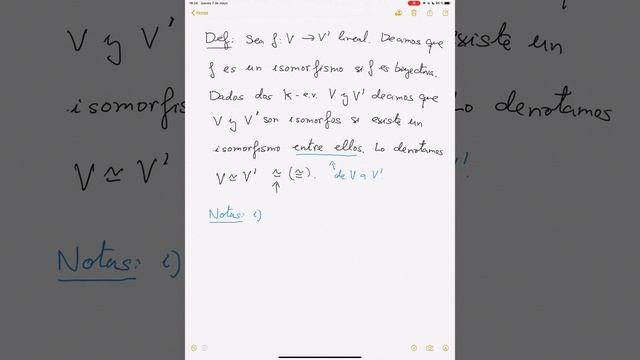 19:24 Jueves 7 de mayo
Notas
Def: Sea f: V → V' lineal. Decimos que
f es un isomorfismo si f es biyectiva.
Dados dos K-e.v. V y V' decimos que
V y V' son isomorfos si existe un
isomorfismo entre ellos. Lo denotamos
V ≃ V' ≃ (≅). de V a V'
↑
Notas: i)
V y V'
isomorfis
V ≃ V'
Notas: i)
xiste un
Lo denotamos